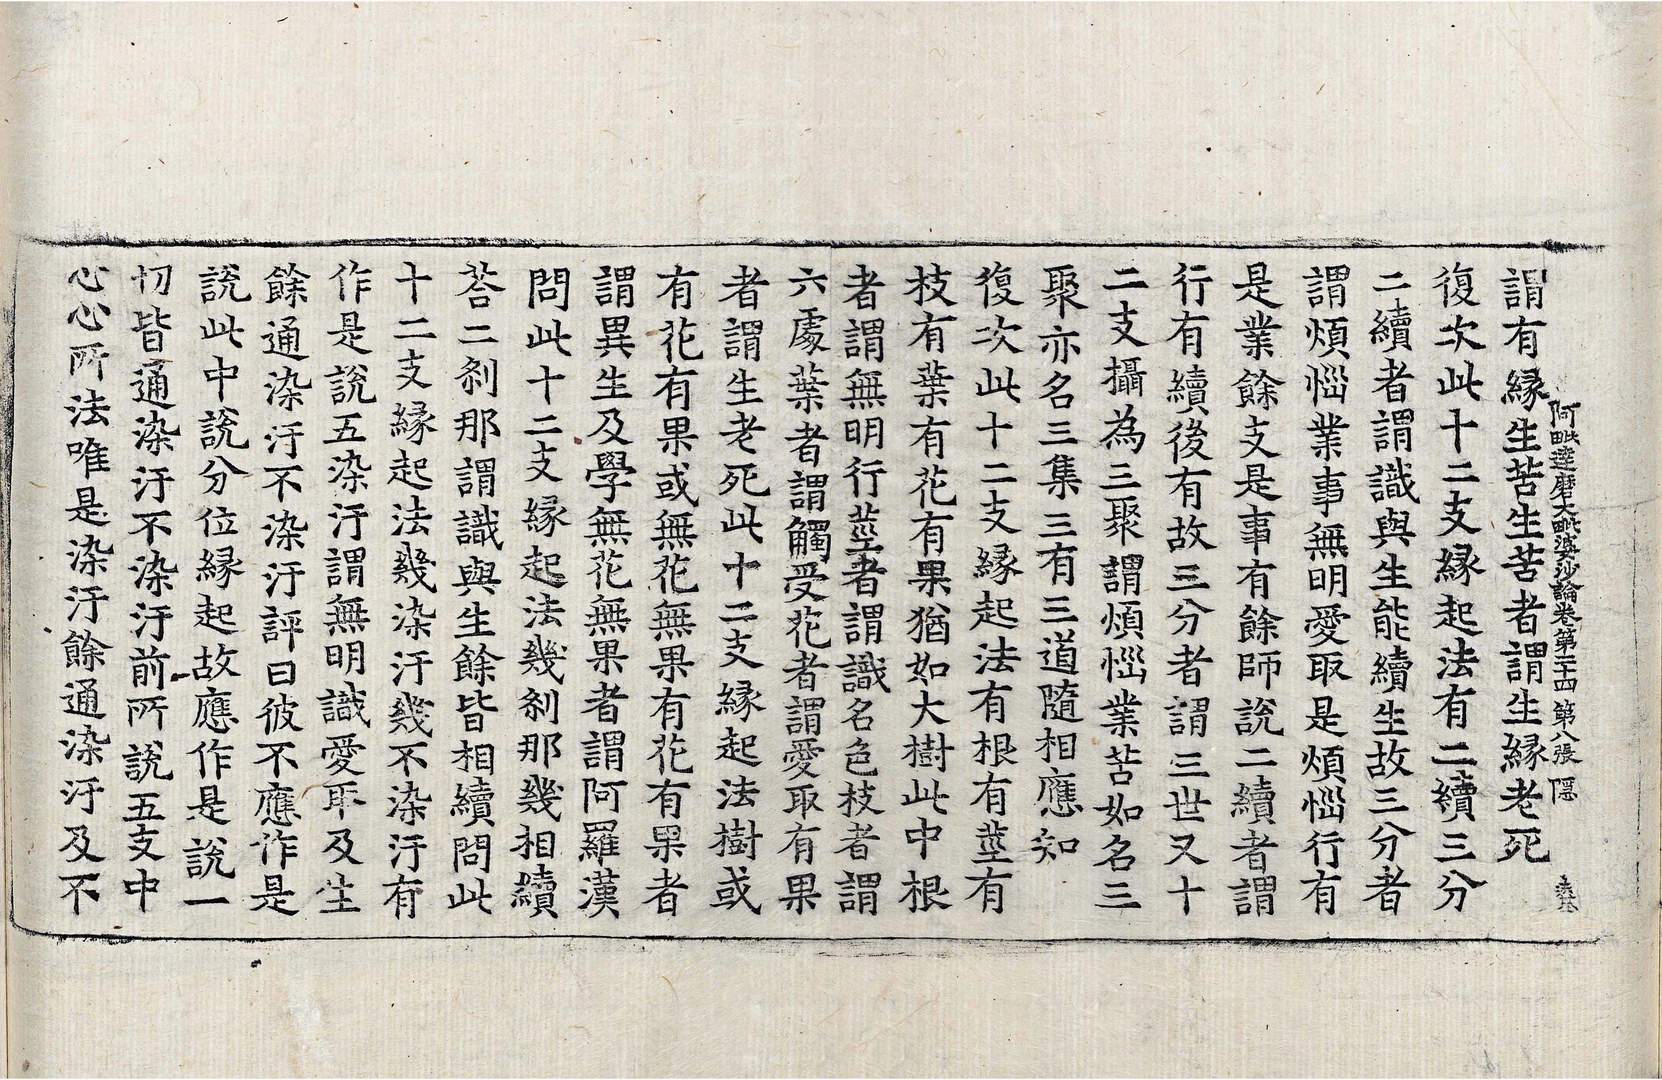 阿毗達磨大毗婆沙論卷第二十四 第八張 隱
謂有緣生苦生苦者謂生緣老死
復次此十二支緣起法有二續三分
二續者謂識與生能續生故三分者
謂煩惱業事無明愛取是煩惱行有
是業餘支是事有餘師說二續者謂
行有續後有故三分者謂三世又十
二支攝為三聚謂煩惱業苦如名三
聚亦名三集三有三道隨相應知
復次此十二支緣起法有根有莖有
枝有葉有花有果猶如大樹此中根
者謂無明行莖者謂識名色枝者謂
六處葉者謂觸受花者謂愛取有果
者謂生老死此十二支緣起法樹或
有花有果或無花無果有花有果者
謂異生及學無花無果者謂阿羅漢
問此十二支緣起法幾剎那幾相續
荅二剎那謂識與生餘皆相續問此
十二支緣起法幾染汙幾不染汙有
作是說五染汙謂無明識愛取及生
餘通染汙不染汙評曰彼不應作是
說此中說分位緣起故應作是說一
切皆通染汙不染汙前所說五支中
心心所法唯是染汙餘通染汙及不